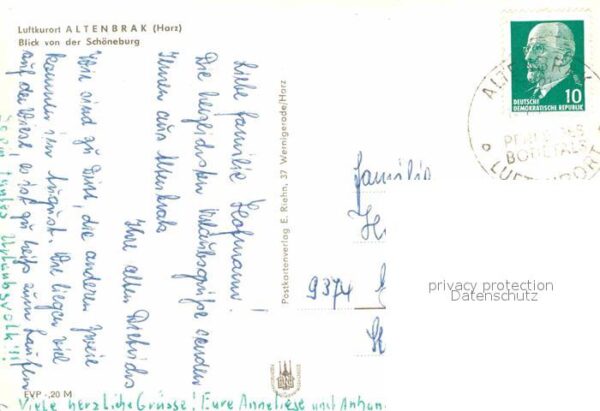 Luftkurort ALTENBRAK (Harz)
Blick von der Schöneburg
Liebe Familie Hofmann!
Die herzlichsten Urlaubsgrüße senden
Ihnen aus Altenbrak
Ihre alten Dietrichs
Wir sind zu Dritt, die anderen zwei
kommen im August. Wir liegen viel
auf der Wiese, es ist zu heiß zum Laufen
EVP -,20 M
Viele herzliche Grüsse! Eure Anneliese und
Postkartenverlag E. Riehn, 37 Wernigerode/Harz
DEUTSCHE
DEMOKRATISCHE REPUBLIK
10
BODETALS
LUFTKURORT
Familie
H
9374
privacy protection
Datenschutz